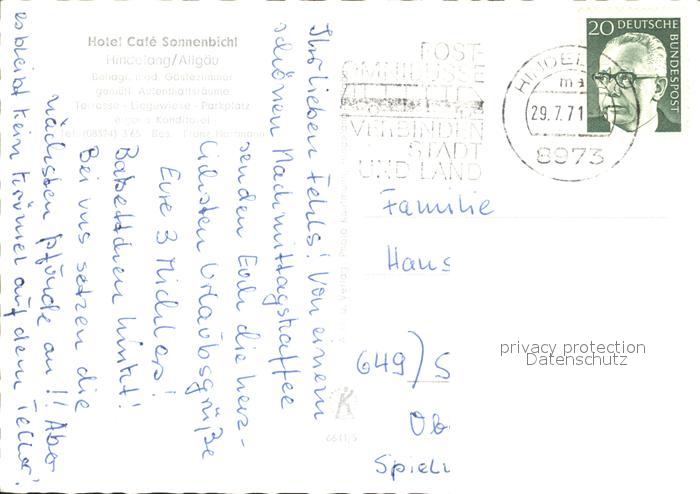 Hotel Café Sonnenbichl
Hindelang/Allgäu
Behagl. mod. Gästezimmer
gemütl. Aufenthaltsräume
Terrasse - Liegewiese - Parkplatz
eigene Konditorei
Tel. (08324) 365 Bes. Franz Hartmann
Ihr lieben Fehls! Von einem
schönen Nachmittagskaffee
senden Euch die herz-
lichsten Urlaubsgrüße
Eure 3 Michlers!
Babettchen hinkt!
Bei uns setzen die
nächsten Pfunde an!! Aber
es bleibt kein Krümel auf dem Teller!
POST-
OMNIBUSSE
VERBINDEN
STADT
UND LAND
HINDEL
ma
29.7.71
8973
20 DEUTSCHE
BUNDESPOST
Familie
Hans
649) S
Ob
Spiel
K
6611/5
privacy protection
Datenschutz